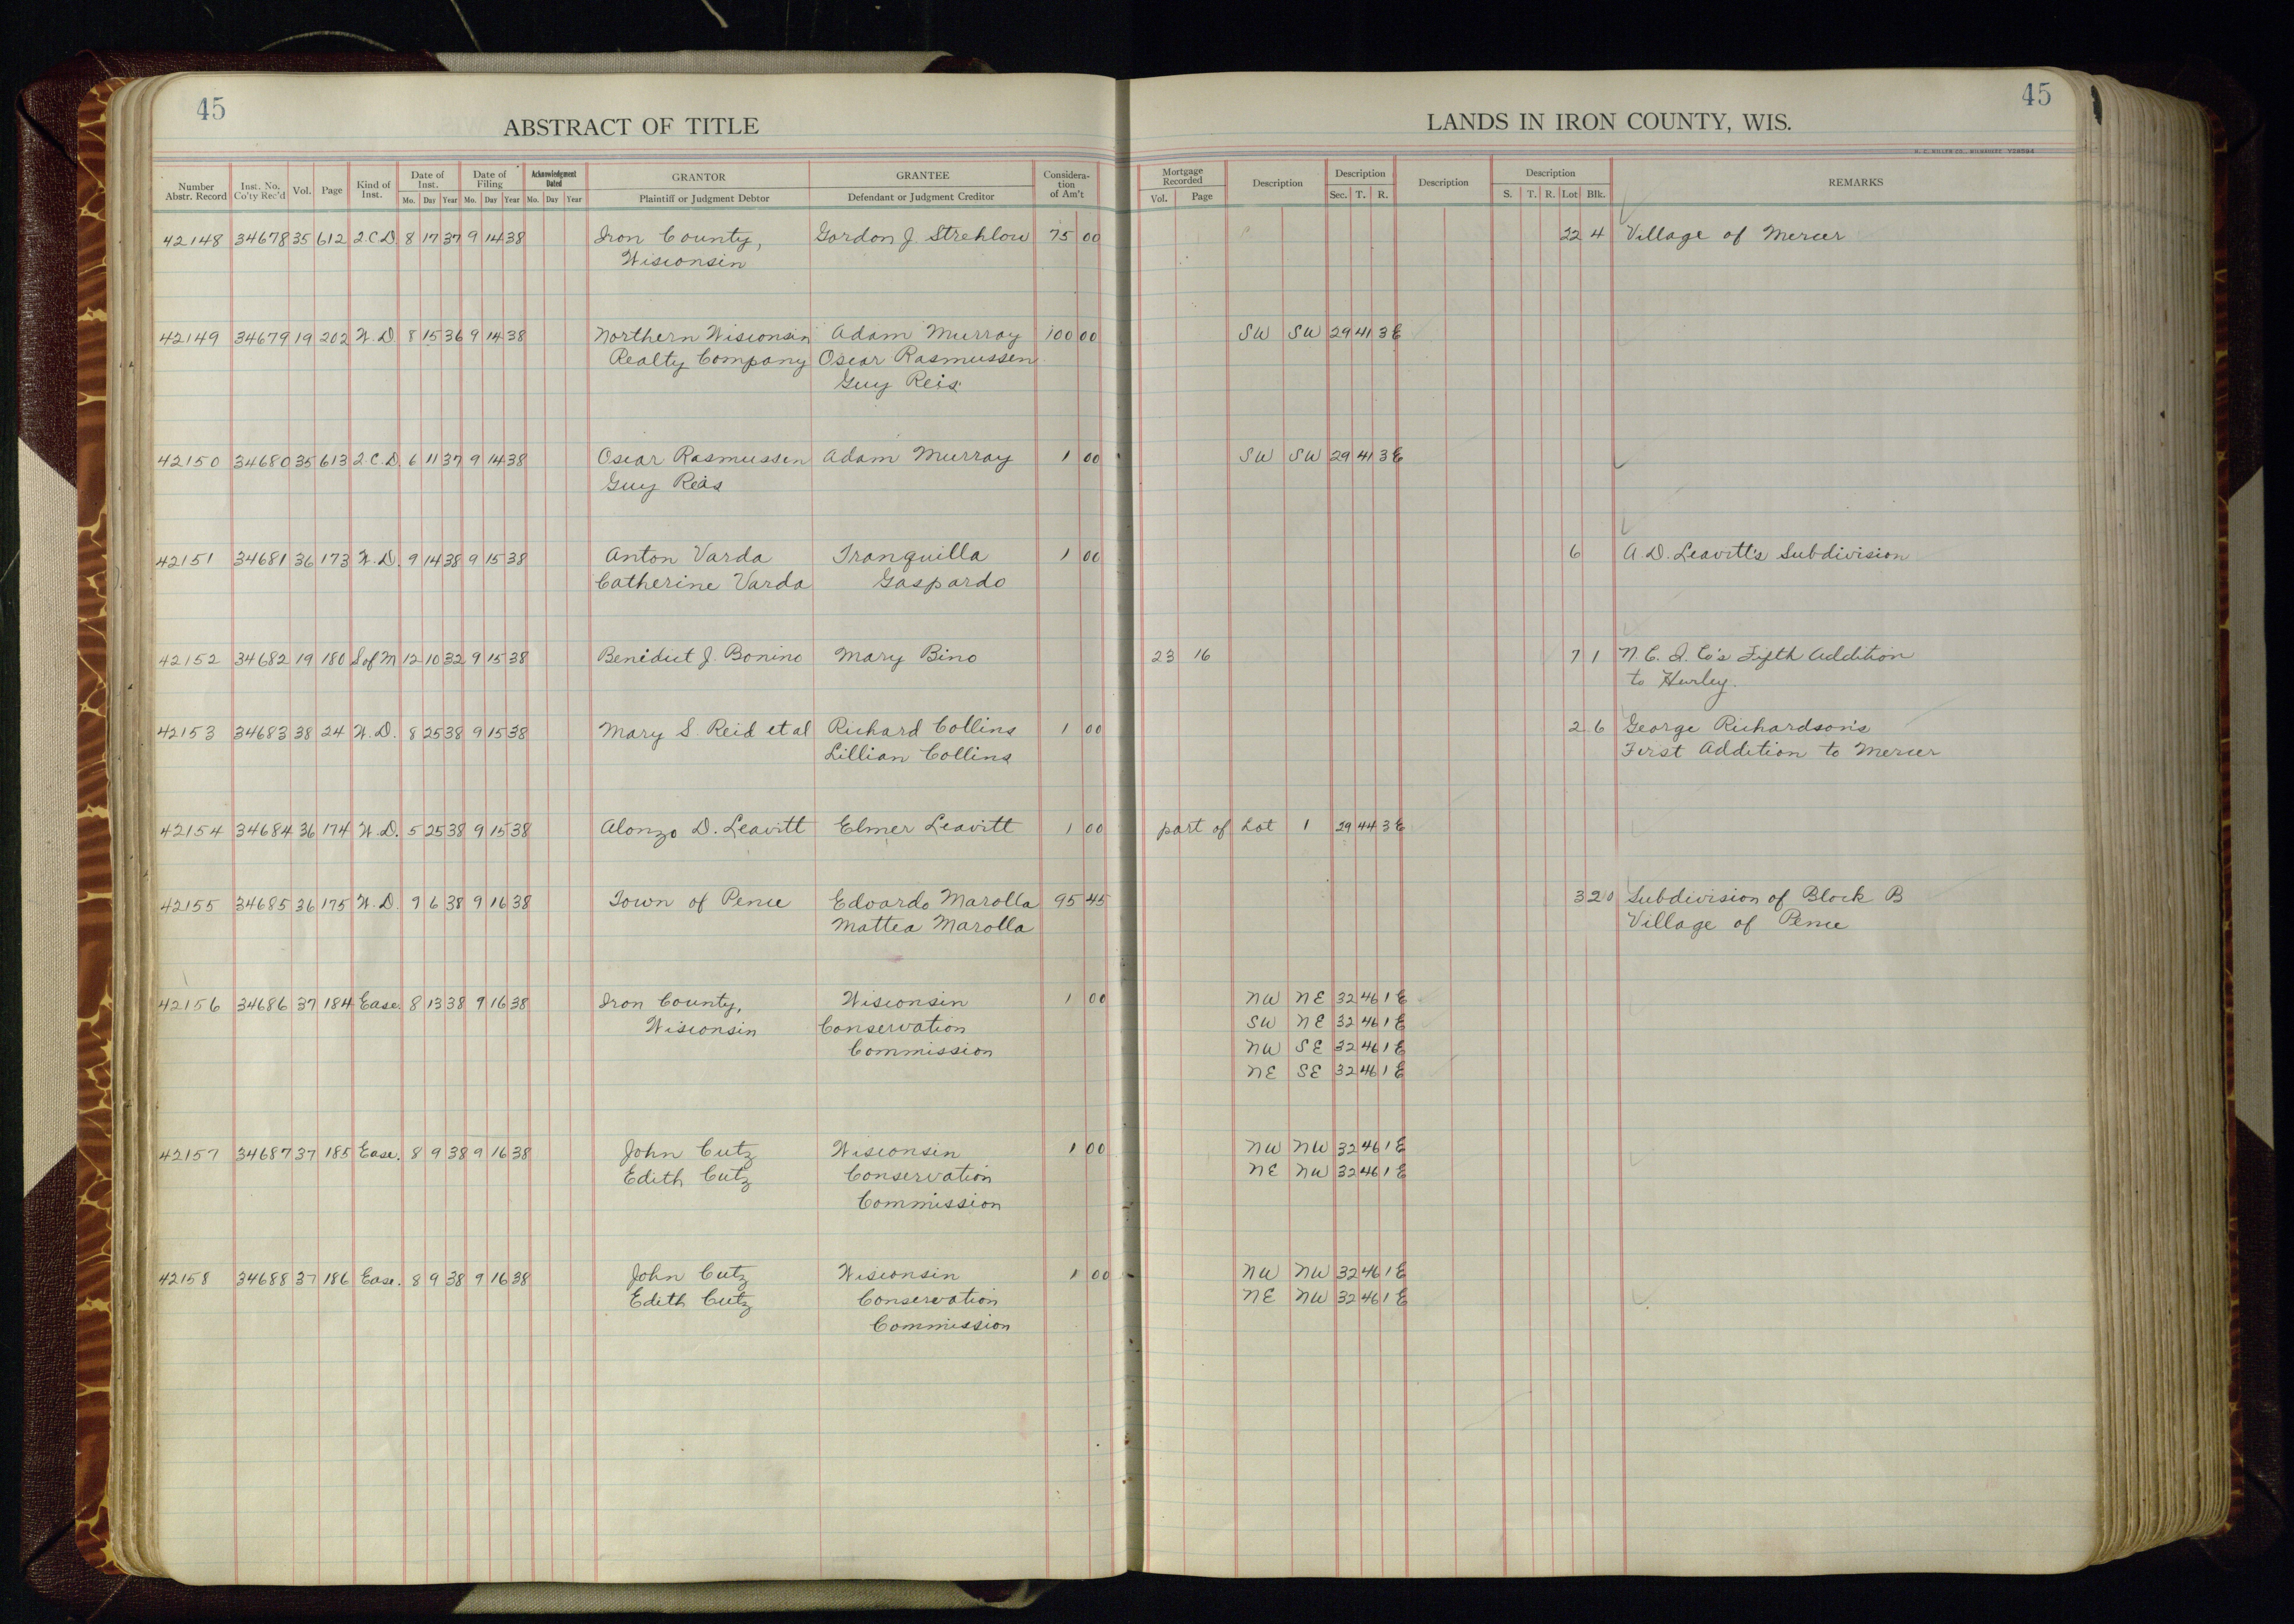 45
ABSTRACT OF TITLE
Number Abstr. Record Inst. No. Co'ty Rec'd Vol. Page Kind of Inst. Date of Inst. Mo. Day Year Date of Filing Mo. Day Year Acknowledgment Dated Mo. Day Year GRANTOR Plaintiff or Judgment Debtor GRANTEE Defendant or Judgment Creditor Considera-tion of Am't
42148 34678 35 612 2.C.D. 8 17 37 9 14 38 Iron County, Gordon J. Strehlow 75 00
Wisconsin
42149 34679 19 202 W.D. 8 15 36 9 14 38 Northern Wisconsin Adam Murray 100 00
Realty Company Oscar Rasmussen
Guy Reis
42150 34680 35 613 2.C.D. 6 11 37 9 14 38 Oscar Rasmussen Adam Murray 1 00
Guy Reis
42151 34681 36 173 W.D. 9 14 38 9 15 38 Anton Varda Tranquilla 1 00
Catherine Varda Gaspardo
42152 34682 19 180 S of M 12 10 32 9 15 38 Benedict J. Bonino Mary Bino
42153 34683 38 24 W.D. 8 25 38 9 15 38 Mary S. Reid et al Richard Collins 1 00
Lillian Collins
42154 34684 36 174 W.D. 5 25 38 9 15 38 Alonzo D. Leavitt Elmer Leavitt 1 00
42155 34685 36 175 W.D. 9 6 38 9 16 38 Town of Pence Edoardo Marolla 95 45
Mattea Marolla
42156 34686 37 184 Ease. 8 13 38 9 16 38 Iron County, Wisconsin 1 00
Wisconsin Conservation
Commission
42157 34687 37 185 Ease. 8 9 38 9 16 38 John Cutz Wisconsin 1 00
Edith Cutz Conservation
Commission
42158 34688 37 186 Ease. 8 9 38 9 16 38 John Cutz Wisconsin 1 00
Edith Cutz Conservation
Commission
45
LANDS IN IRON COUNTY, WIS.
Mortgage Recorded Vol. Page Description Description Sec. T. R. Description Description S. T. R. Lot Blk. REMARKS
22 4 Village of Mercer
SW SW 29 41 3 E
SW SW 29 41 3 E
6 A.D. Leavitt's Subdivision
23 16 7 1 N.C.I. Co's Fifth Addition
to Hurley.
2 6 George Richardson's
First Addition to Mercer
part of Lot 1 29 44 3 E
3 20 Subdivision of Block B
Village of Pence
NW NE 32 46 1 E
SW NE 32 46 1 E
NW SE 32 46 1 E
NE SE 32 46 1 E
NW NW 32 46 1 E
NE NW 32 46 1 E
NW NW 32 46 1 E
NE NW 32 46 1 E